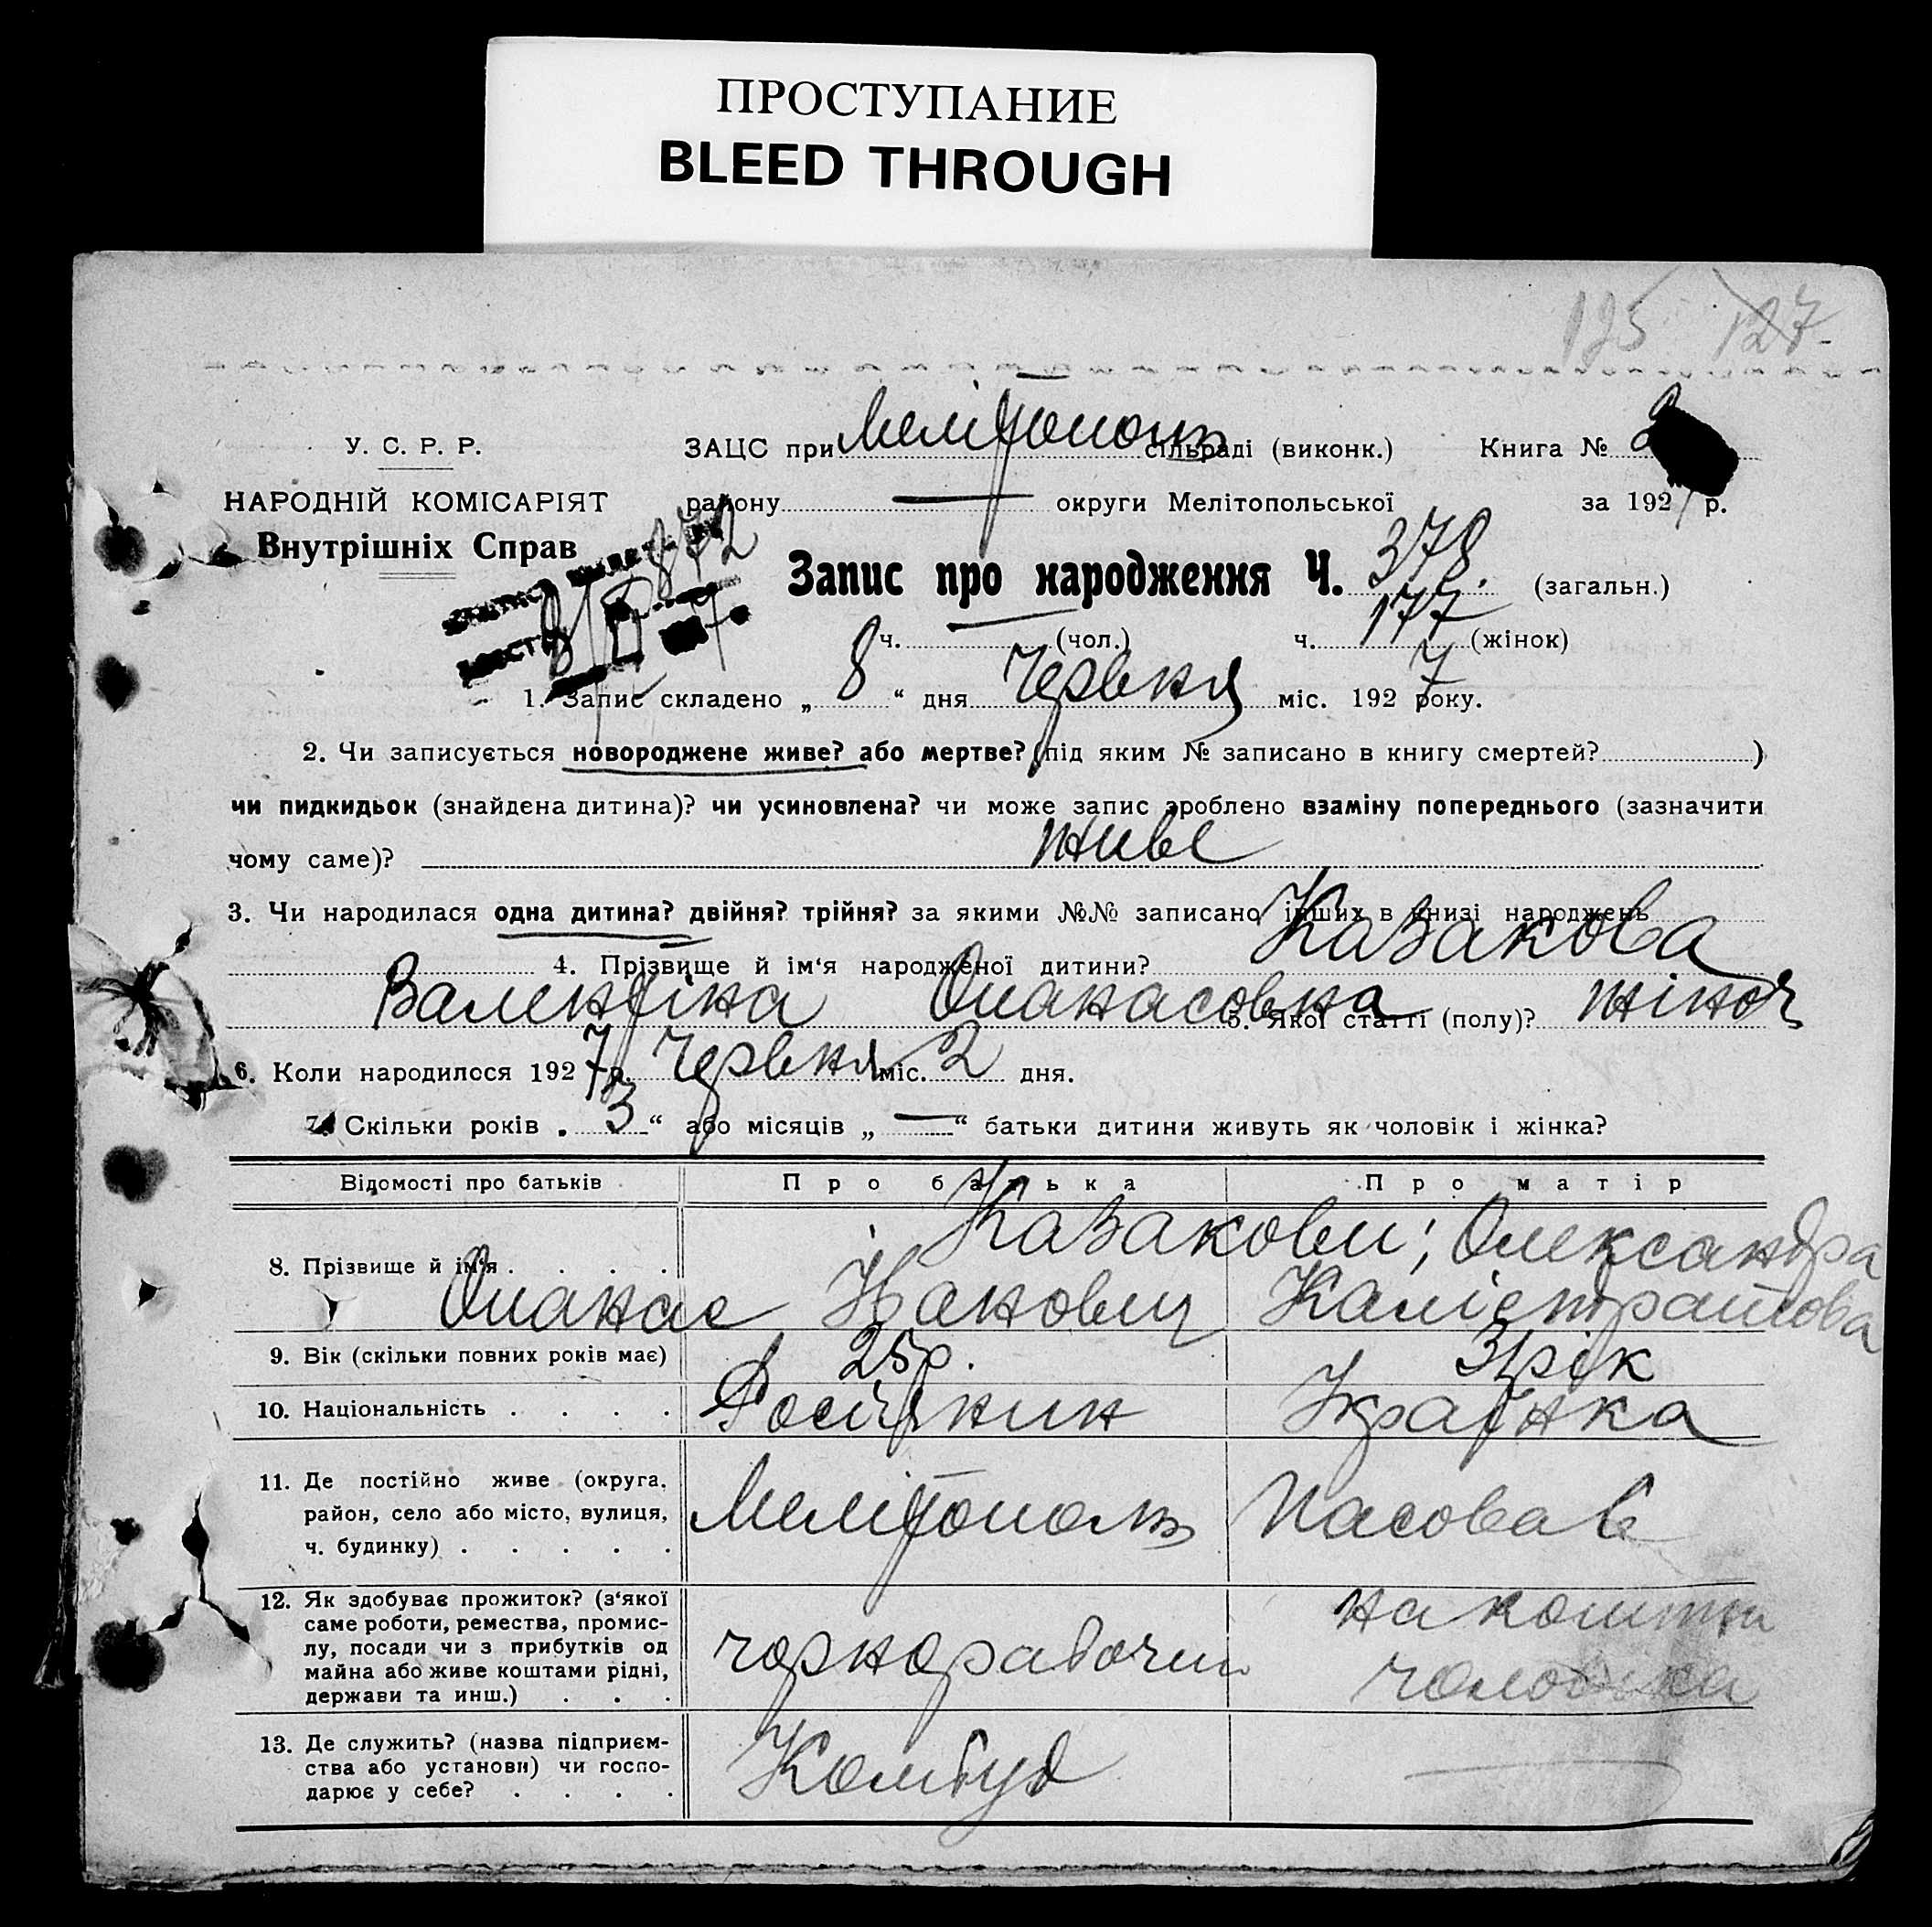 ПРОСТУПАНИЕ
BLEED THROUGH
125 127
У. С. Р. Р.
НАРОДНІЙ КОМІСАРІЯТ
Внутрішніх Справ
ЗАЦС при Мелітополь сільраді (виконк.) Книга № 2
району — округи Мелітопольської за 1927 р.
872
Запис про народження Ч. 378. (загальн.)
ч. — (чол.) ч. 177 (жінок)
1. Запис складено „ 8 “ дня Червня міс. 1927 року.
2. Чи записується новороджене живе? або мертве? (під яким № записано в книгу смертей? )
чи пидкидьок (знайдена дитина)? чи усиновлена? чи може запис зроблено взаміну попереднього (зазначити
чому саме)? живе
3. Чи народилася одна дитина? двійня? трійня? за якими №№ записано інших в книзі народжень
4. Прізвище й ім‘я народженої дитини? Казакова
Валентіна Опанасовна 5. Якої статті (полу)? жіноч
6. Коли народилося 1927 р. Червня міс. 2 дня.
7. Скільки років „ 3 “ або місяців „ — “ батьки дитини живуть як чоловік і жінка?
Відомості про батьків Про батька Про матір
8. Прізвище й ім‘я . . . . Казакови; Олександра
Опанас Іванович Калістратова
9. Вік (скільки повних років має) 25 р. 31 рік
10. Національність . . . . Росіянин Українка
11. Де постійно живе (округа,
район, село або місто, вулиця,
ч. будинку) . . . . .
Мелітополь
12. Як здобуває прожиток? (з‘якої
саме роботи, ремества, промис-
лу, посади чи з прибутків од
майна або живе коштами рідні,
держави та инш.) . . .
чорнорабочий на кошти
чоловіка
13. Де служить? (назва підприєм-
ства або установи) чи госпо-
дарює у себе? . . . .
Комбуд —